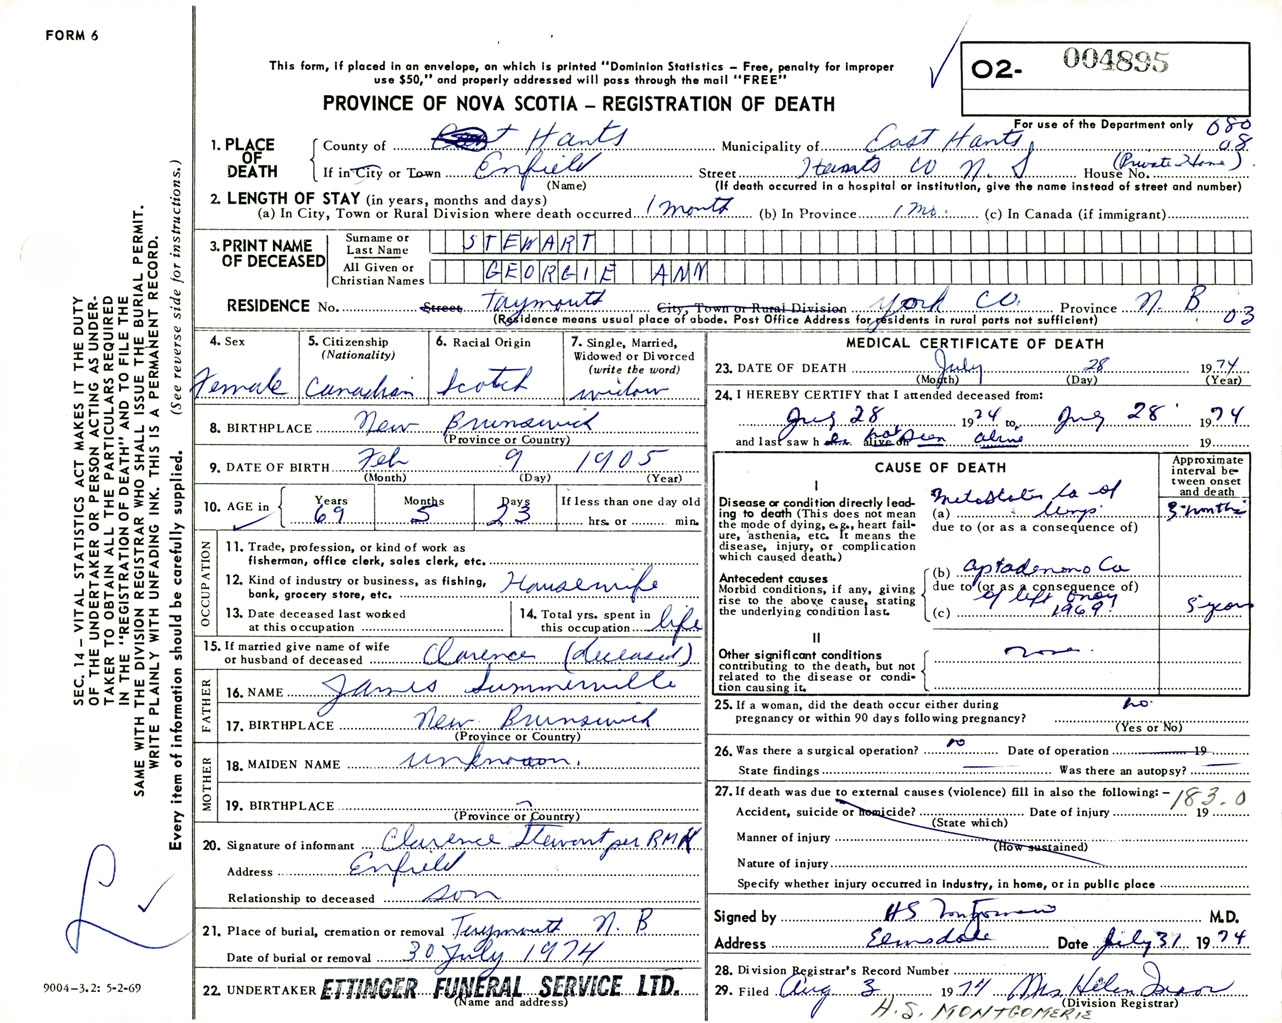 FORM 6
This form, if placed in an envelope, on which is printed "Dominion Statistics – Free, penalty for improper
use $50," and properly addressed will pass through the mail "FREE"
PROVINCE OF NOVA SCOTIA – REGISTRATION OF DEATH
O2- 004895
For use of the Department only 080
08
1. PLACE OF DEATH
County of Hants Municipality of East Hants
If in City or Town Enfield Street Hants Co N. S House No. (Private Home)
(Name) (If death occurred in a hospital or institution, give the name instead of street and number)
2. LENGTH OF STAY (in years, months and days)
(a) In City, Town or Rural Division where death occurred 1 month (b) In Province 1 Mo. (c) In Canada (if immigrant)
3. PRINT NAME OF DECEASED
Surname or Last Name STEWART
All Given or Christian Names GEORGIE ANN
RESIDENCE No. Street Taymouth City, Town or Rural Division York Co. Province N. B
(Residence means usual place of abode. Post Office Address for residents in rural parts not sufficient) 03
4. Sex Female
5. Citizenship (Nationality) Canadian
6. Racial Origin Scotch
7. Single, Married, Widowed or Divorced (write the word) widow
8. BIRTHPLACE New Brunswick
(Province or Country)
9. DATE OF BIRTH Feb 9 1905
(Month) (Day) (Year)
10. AGE in Years 69 Months 5 Days 23 If less than one day old
hrs. or min.
OCCUPATION
11. Trade, profession, or kind of work as
fisherman, office clerk, sales clerk, etc.
12. Kind of industry or business, as fishing,
bank, grocery store, etc. Housewife
13. Date deceased last worked
at this occupation
14. Total yrs. spent in
this occupation life
15. If married give name of wife
or husband of deceased Clarence (deceased)
FATHER
16. NAME James Summerville
17. BIRTHPLACE New Brunswick
(Province or Country)
MOTHER
18. MAIDEN NAME unknown.
19. BIRTHPLACE ?
(Province or Country)
20. Signature of informant Clarence Stewart per RMK
Address Enfield
Relationship to deceased son
21. Place of burial, cremation or removal Taymouth N. B
Date of burial or removal 30 July 1974
22. UNDERTAKER ETTINGER FUNERAL SERVICE LTD.
(Name and address)
MEDICAL CERTIFICATE OF DEATH
23. DATE OF DEATH July 28 1974
(Month) (Day) (Year)
24. I HEREBY CERTIFY that I attended deceased from:
July 28 1974 to July 28 1974
and last saw h alive on not seen alive 19
CAUSE OF DEATH
Approximate interval between onset and death
I
Disease or condition directly lead-
ing to death (This does not mean
the mode of dying, e.g., heart fail-
ure, asthenia, etc. It means the
disease, injury, or complication
which caused death.)
(a) Metastatic Ca of lungs 3 months
due to (or as a consequence of)
Antecedent causes
Morbid conditions, if any, giving
rise to the above cause, stating
the underlying condition last.
(b) Ca
due to (or as a consequence of)
of left ovary
(c) 1969 5 years
II
Other significant conditions
contributing to the death, but not
related to the disease or condi-
tion causing it.
none.
25. If a woman, did the death occur either during
pregnancy or within 90 days following pregnancy? no.
(Yes or No)
26. Was there a surgical operation? no Date of operation 19
State findings Was there an autopsy?
27. If death was due to external causes (violence) fill in also the following: – 183.0
Accident, suicide or homicide? Date of injury 19
(State which)
Manner of injury
(How sustained)
Nature of injury
Specify whether injury occurred in Industry, in home, or in public place
Signed by HS Montgomerie M.D.
Address Elmsdale Date July 31 1974
28. Division Registrar's Record Number
29. Filed Aug 3 1974 Mrs Helen
(Division Registrar)
H.S. MONTGOMERIE
SEC. 14 – VITAL STATISTICS ACT MAKES IT THE DUTY
OF THE UNDERTAKER OR PERSON ACTING AS UNDER-
TAKER TO OBTAIN ALL THE PARTICULARS REQUIRED
IN THE "REGISTRATION OF DEATH" AND TO FILE THE
SAME WITH THE DIVISION REGISTRAR WHO SHALL ISSUE THE BURIAL PERMIT.
WRITE PLAINLY WITH UNFADING INK. THIS IS A PERMANENT RECORD.
Every item of information should be carefully supplied. (See reverse side for instructions.)
9004-3.2: 5-2-69